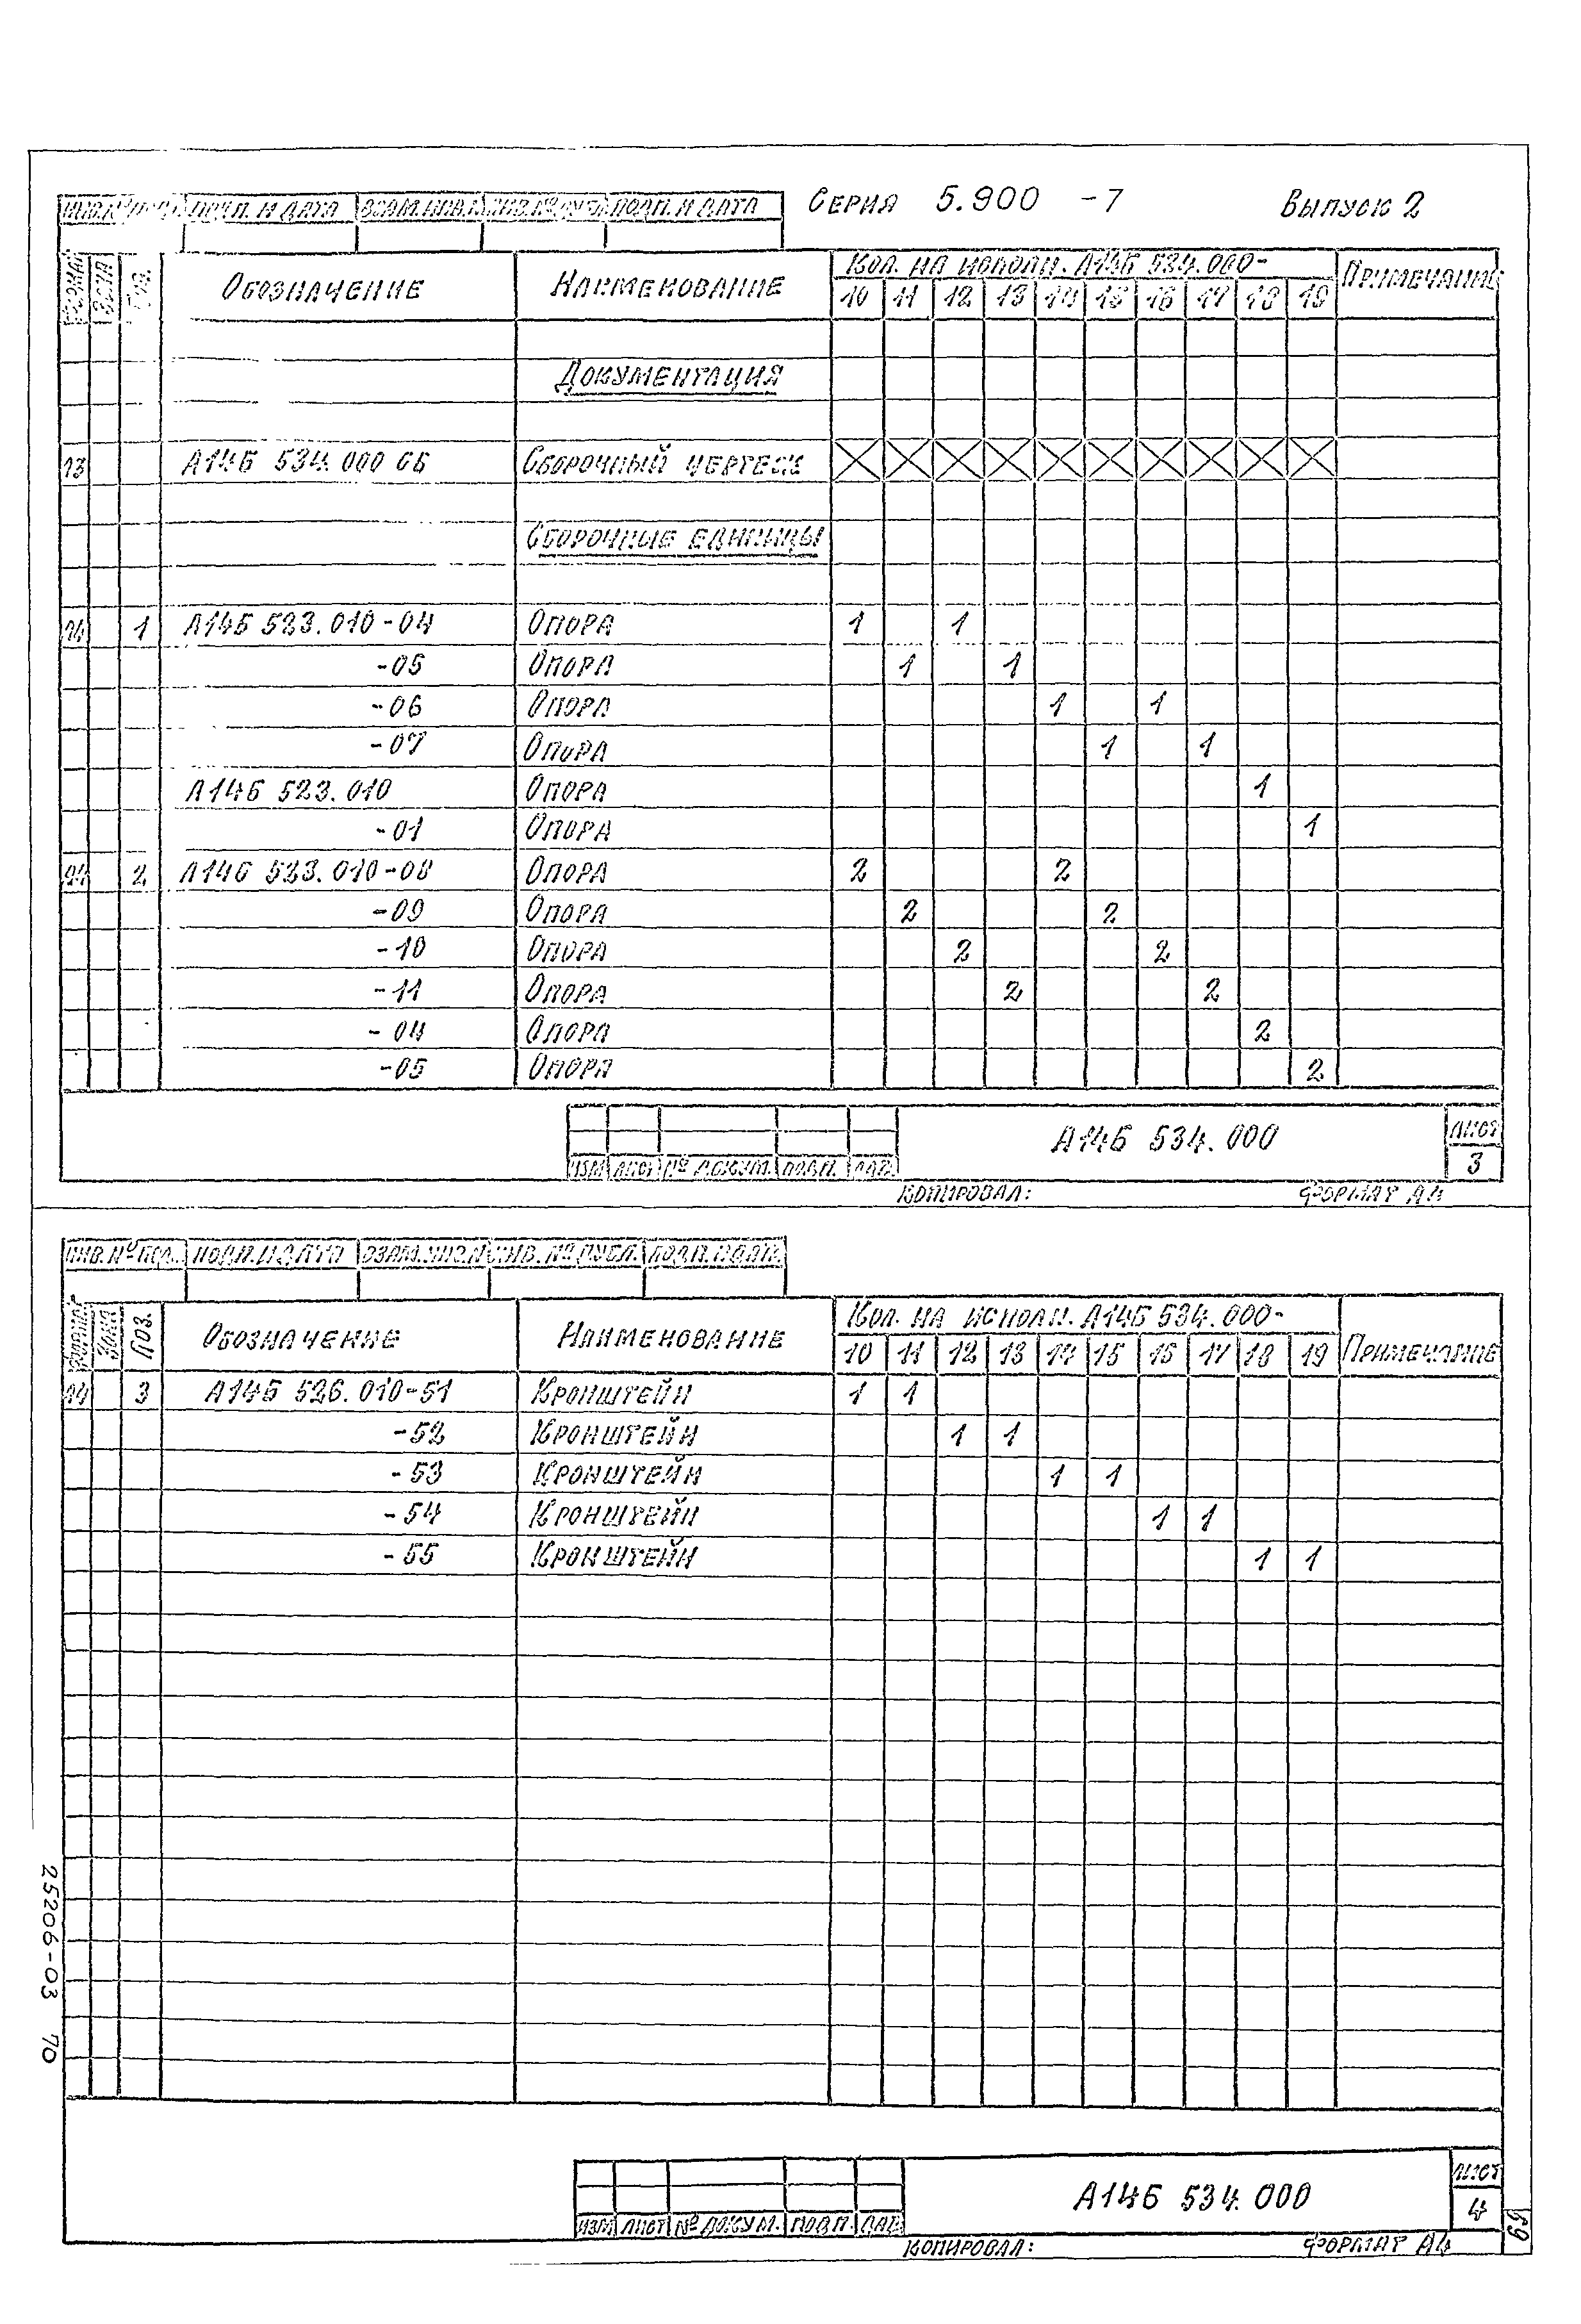 Серия 5.900 -7 Выпуск 2
ПОДП. И ДАТА ВЗАМ.ИНВ.№ ПОДП. И ДАТА
Обозначение Наименование Кол. на исполн. А14Б 534.000- Примечание
10 11 12 13 14 15 16 17 18 19
Документация
А14Б 534.000 СБ Сборочный чертеж
Сборочные единицы
А4 1 А14Б 523.010-04 Опора 1 1
-05 Опора 1 1
-06 Опора 1 1
-07 Опора 1 1
А14Б 523.010 Опора 1
-01 Опора 1
А4 2 А14Б 523.010-08 Опора 2 2
-09 Опора 2 2
-10 Опора 2 2
-11 Опора 2 2
-04 Опора 2
-05 Опора 2
ИЗМ ЛИСТ № ДОКУМ. ПОДП. ДАТ. А14Б 534.000 ЛИСТ 3
КОПИРОВАЛ: ФОРМАТ А4
ПОДП. И ДАТА ВЗАМ.ИНВ.№ ИНВ.№ ДУБЛ. ПОДП. И ДАТ.
Формат Зона Поз. Обозначение Наименование Кол. на исполн. А14Б 534.000- Примечание
10 11 12 13 14 15 16 17 18 19
А4 3 А14Б 526.010-51 Кронштейн 1 1
-52 Кронштейн 1 1
-53 Кронштейн 1 1
-54 Кронштейн 1 1
-55 Кронштейн 1 1
ИЗМ ЛИСТ № ДОКУМ. ПОДП. ДАТ. А14Б 534.000 ЛИСТ 4
КОПИРОВАЛ: ФОРМАТ А4
25206-03 70
69